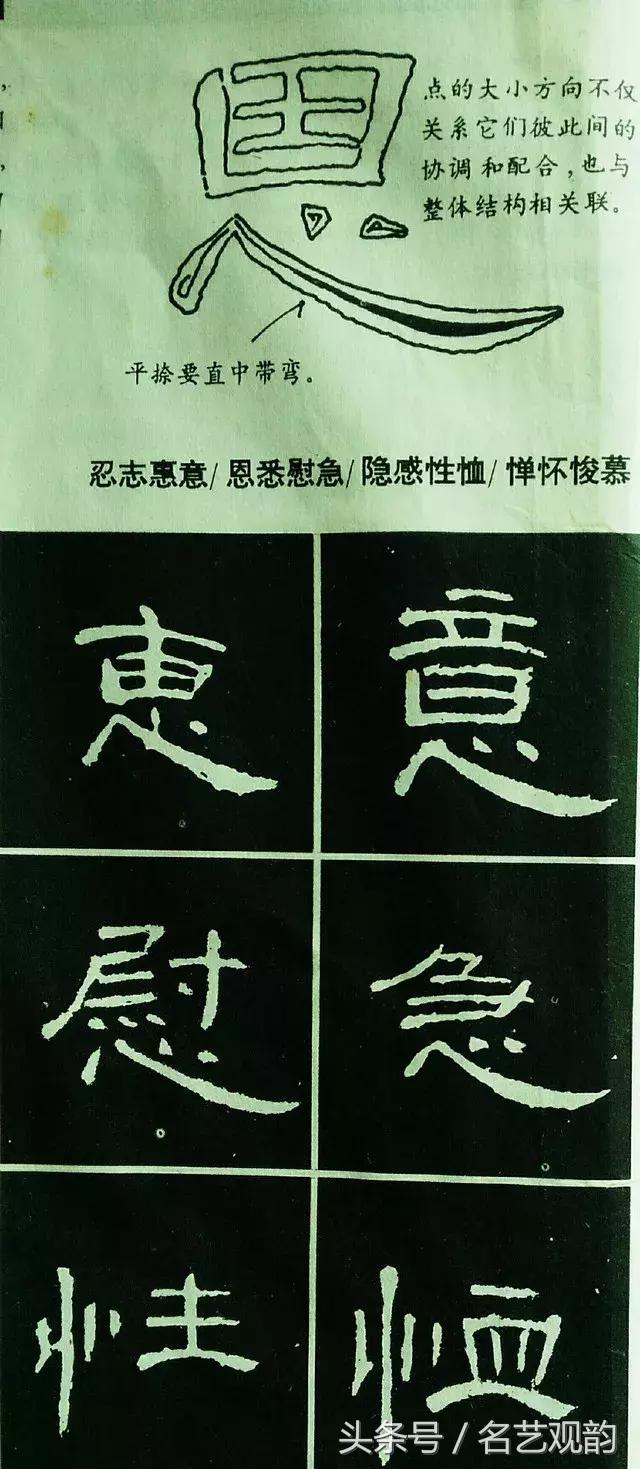 恩
点的大小方向不仅
关系它们彼此间的
协调和配合，也与
整体结构相关联。
平捺要直中带弯。
忍志惠意/恩悉慰急/隐感性恤/惮怀悛慕
惠 意
慰 急
性 恤
头条号 / 名艺观韵